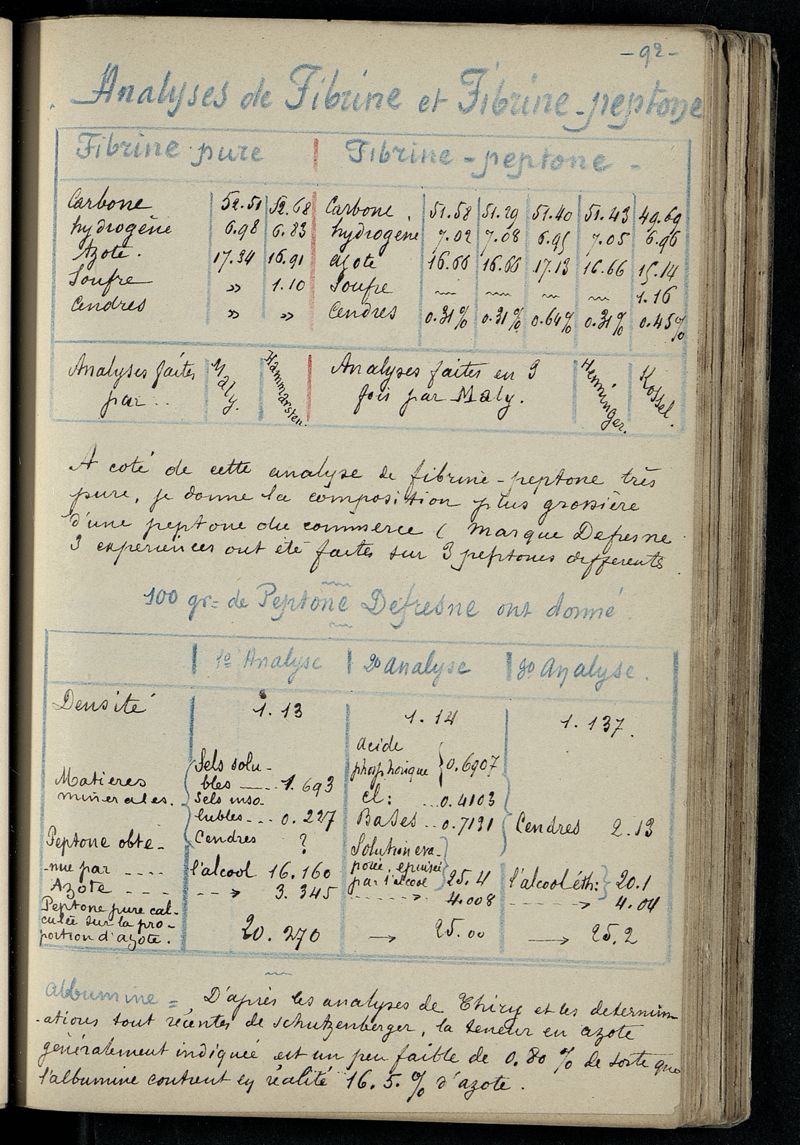 - 92 -
Analyses de Fibrine et Fibrine-peptone
Fibrine pure | Fibrine - peptone -
Carbone 52.51 52.68 Carbone. 51.58 51.29 51.40 51.43 49.69
hydrogène 6.98 6.83 hydrogène 7.02 7.08 6.95 7.05 6.96
Azote. 17.34 16.91 azote 16.66 16.66 17.13 16.66 15.14
Soufre » 1.10 Soufre ~ ~ ~ ~ 1.16
Cendres » » Cendres 0.31% 0.31% 0.64% 0.31% 0.45%
Analyses faites Maly. Hammarsten. Analyses faites en 3 Henninger. Kossel.
par .. fois par Maly.
A coté de cette analyse de fibrine-peptone très
pure, je donne la composition plus grossière
d'une peptone du commerce ( Marque Defresne
3 experiences ont été faites sur 3 peptones differents.
100 gr= de Peptone Defresne ont donné
1e Analyse | 2e analyse | 3e Analyse.
Densité 1.13 1.14 1.137.
Matieres minerales.
Sels solubles --- 1.693
Sels insolubles --- 0.227
Cendres ?
acide phosphorique 0.6907
cl: ... 0.4103
Bases .. 0.7131
Cendres 2.13
Peptone obte-
-nue par ---- l'alcool 16.160
Solution eva-
porée, epuisée
par l'alcool 25.4
l'alcool éth: 20.1
Azote --- --→ 3.345 ------→ 4.008 ------→ 4.04
Peptone pure cal-
culée sur la pro-
portion d'azote. 20.270 → 25.00 → 25.2
albumine = D'après les analyses de Thiry et les determin-
-ations tout récentes de schutzenberger, la teneur en azote
généralement indiquée est un peu faible de 0.80 % de sorte que
l'albumine contient en réalité 16.5.% d'azote.